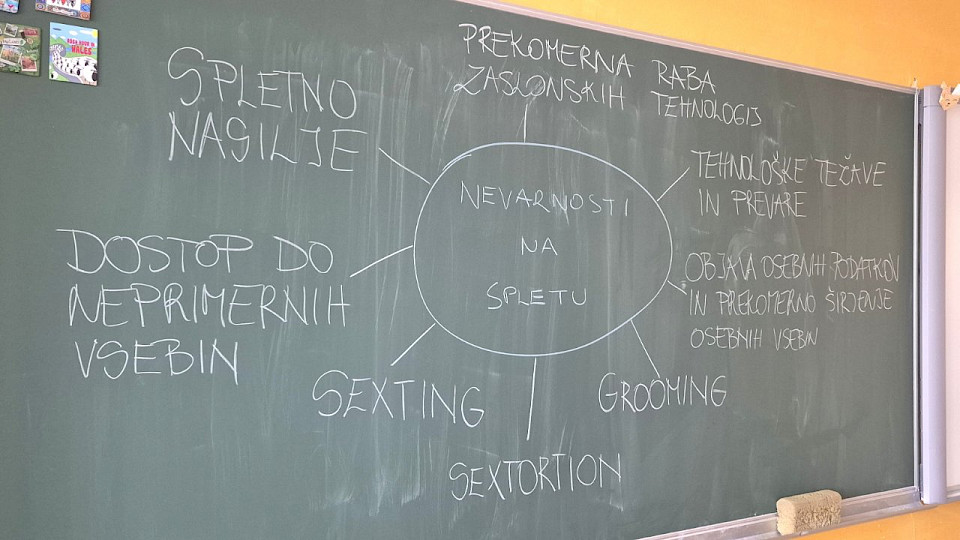 PREKOMERNA RABA
ZASLONSKIH TEHNOLOGIJ
SPLETNO
NASILJE
TEHNOLOŠKE TEŽAVE
IN PREVARE
NEVARNOSTI
NA
SPLETU
DOSTOP DO
NEPRIMERNIH
VSEBIN
OBJAVA OSEBNIH PODATKOV
IN PREKOMERNO ŠIRJENJE
OSEBNIH VSEBIN
SEXTING
GROOMING
SEXTORTION
WALES